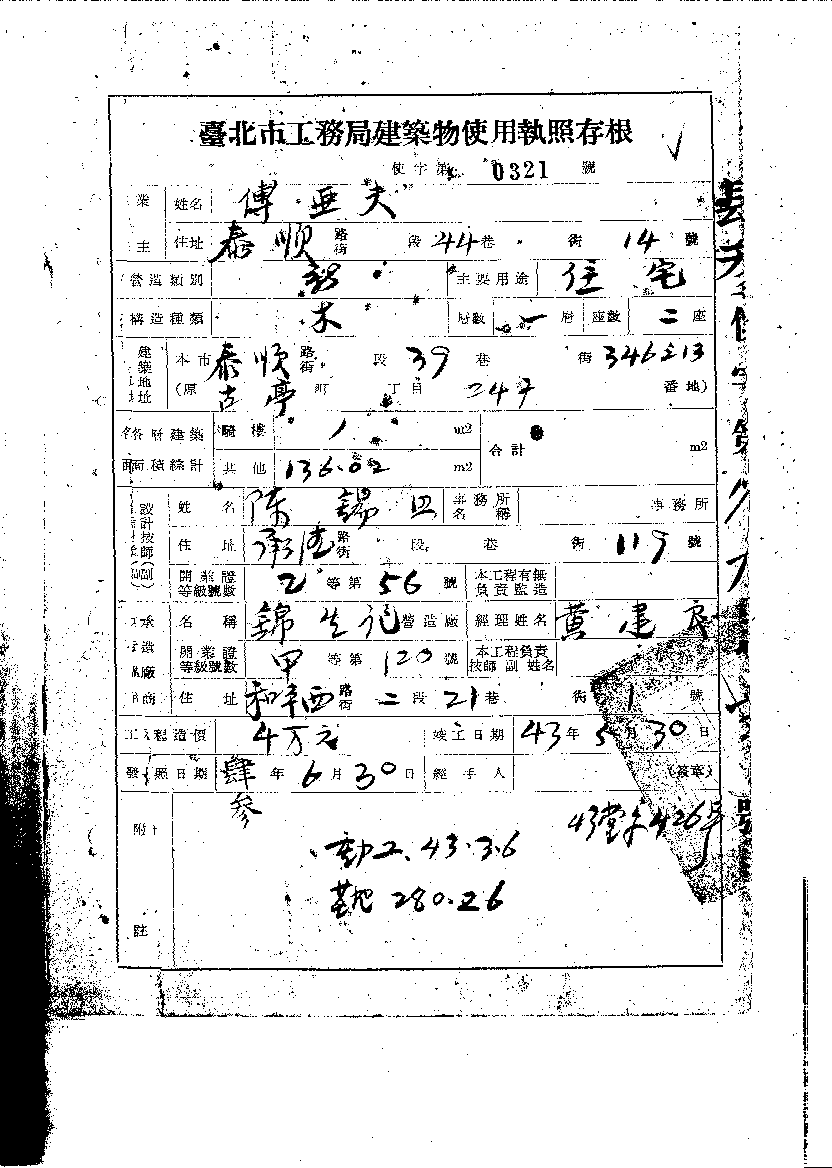 臺北市工務局建築物使用執照存根
使字第 0321 號
業主 姓名 傅亞夫
住址 泰順 路街 段 44 巷 街 14 號
營造類別 新 主要用途 住宅
構造種類 木 層數 一 層 座數 二 座
建築地址 本市 泰順 路街 段 39 巷 街 346至13
(原 古亭 町 丁目 247 番地)
各層建築面積綜計 騎樓 / m2 合計 m2
其他 136.02 m2
設計技師(副) 姓名 陳錫 事務所名稱 事務所
住址 承德 路街 段 巷 街 119 號
開業證等級號數 2 等第 56 號 本工程有無負責監造
承造廠商 名稱 錦生 營造廠 經理姓名 黃建
開業證等級號數 甲 等第 120 號 本工程負責技師副姓名
住址 和平西 路街 二 段 21 巷 街 1 號
工程造價 4万元 竣工日期 43 年 5 月 30 日
發照日期 肆參 年 6 月 30 日 經手人 (簽章)
附註 43營字426号
動工.43.3.6
基地 280.26